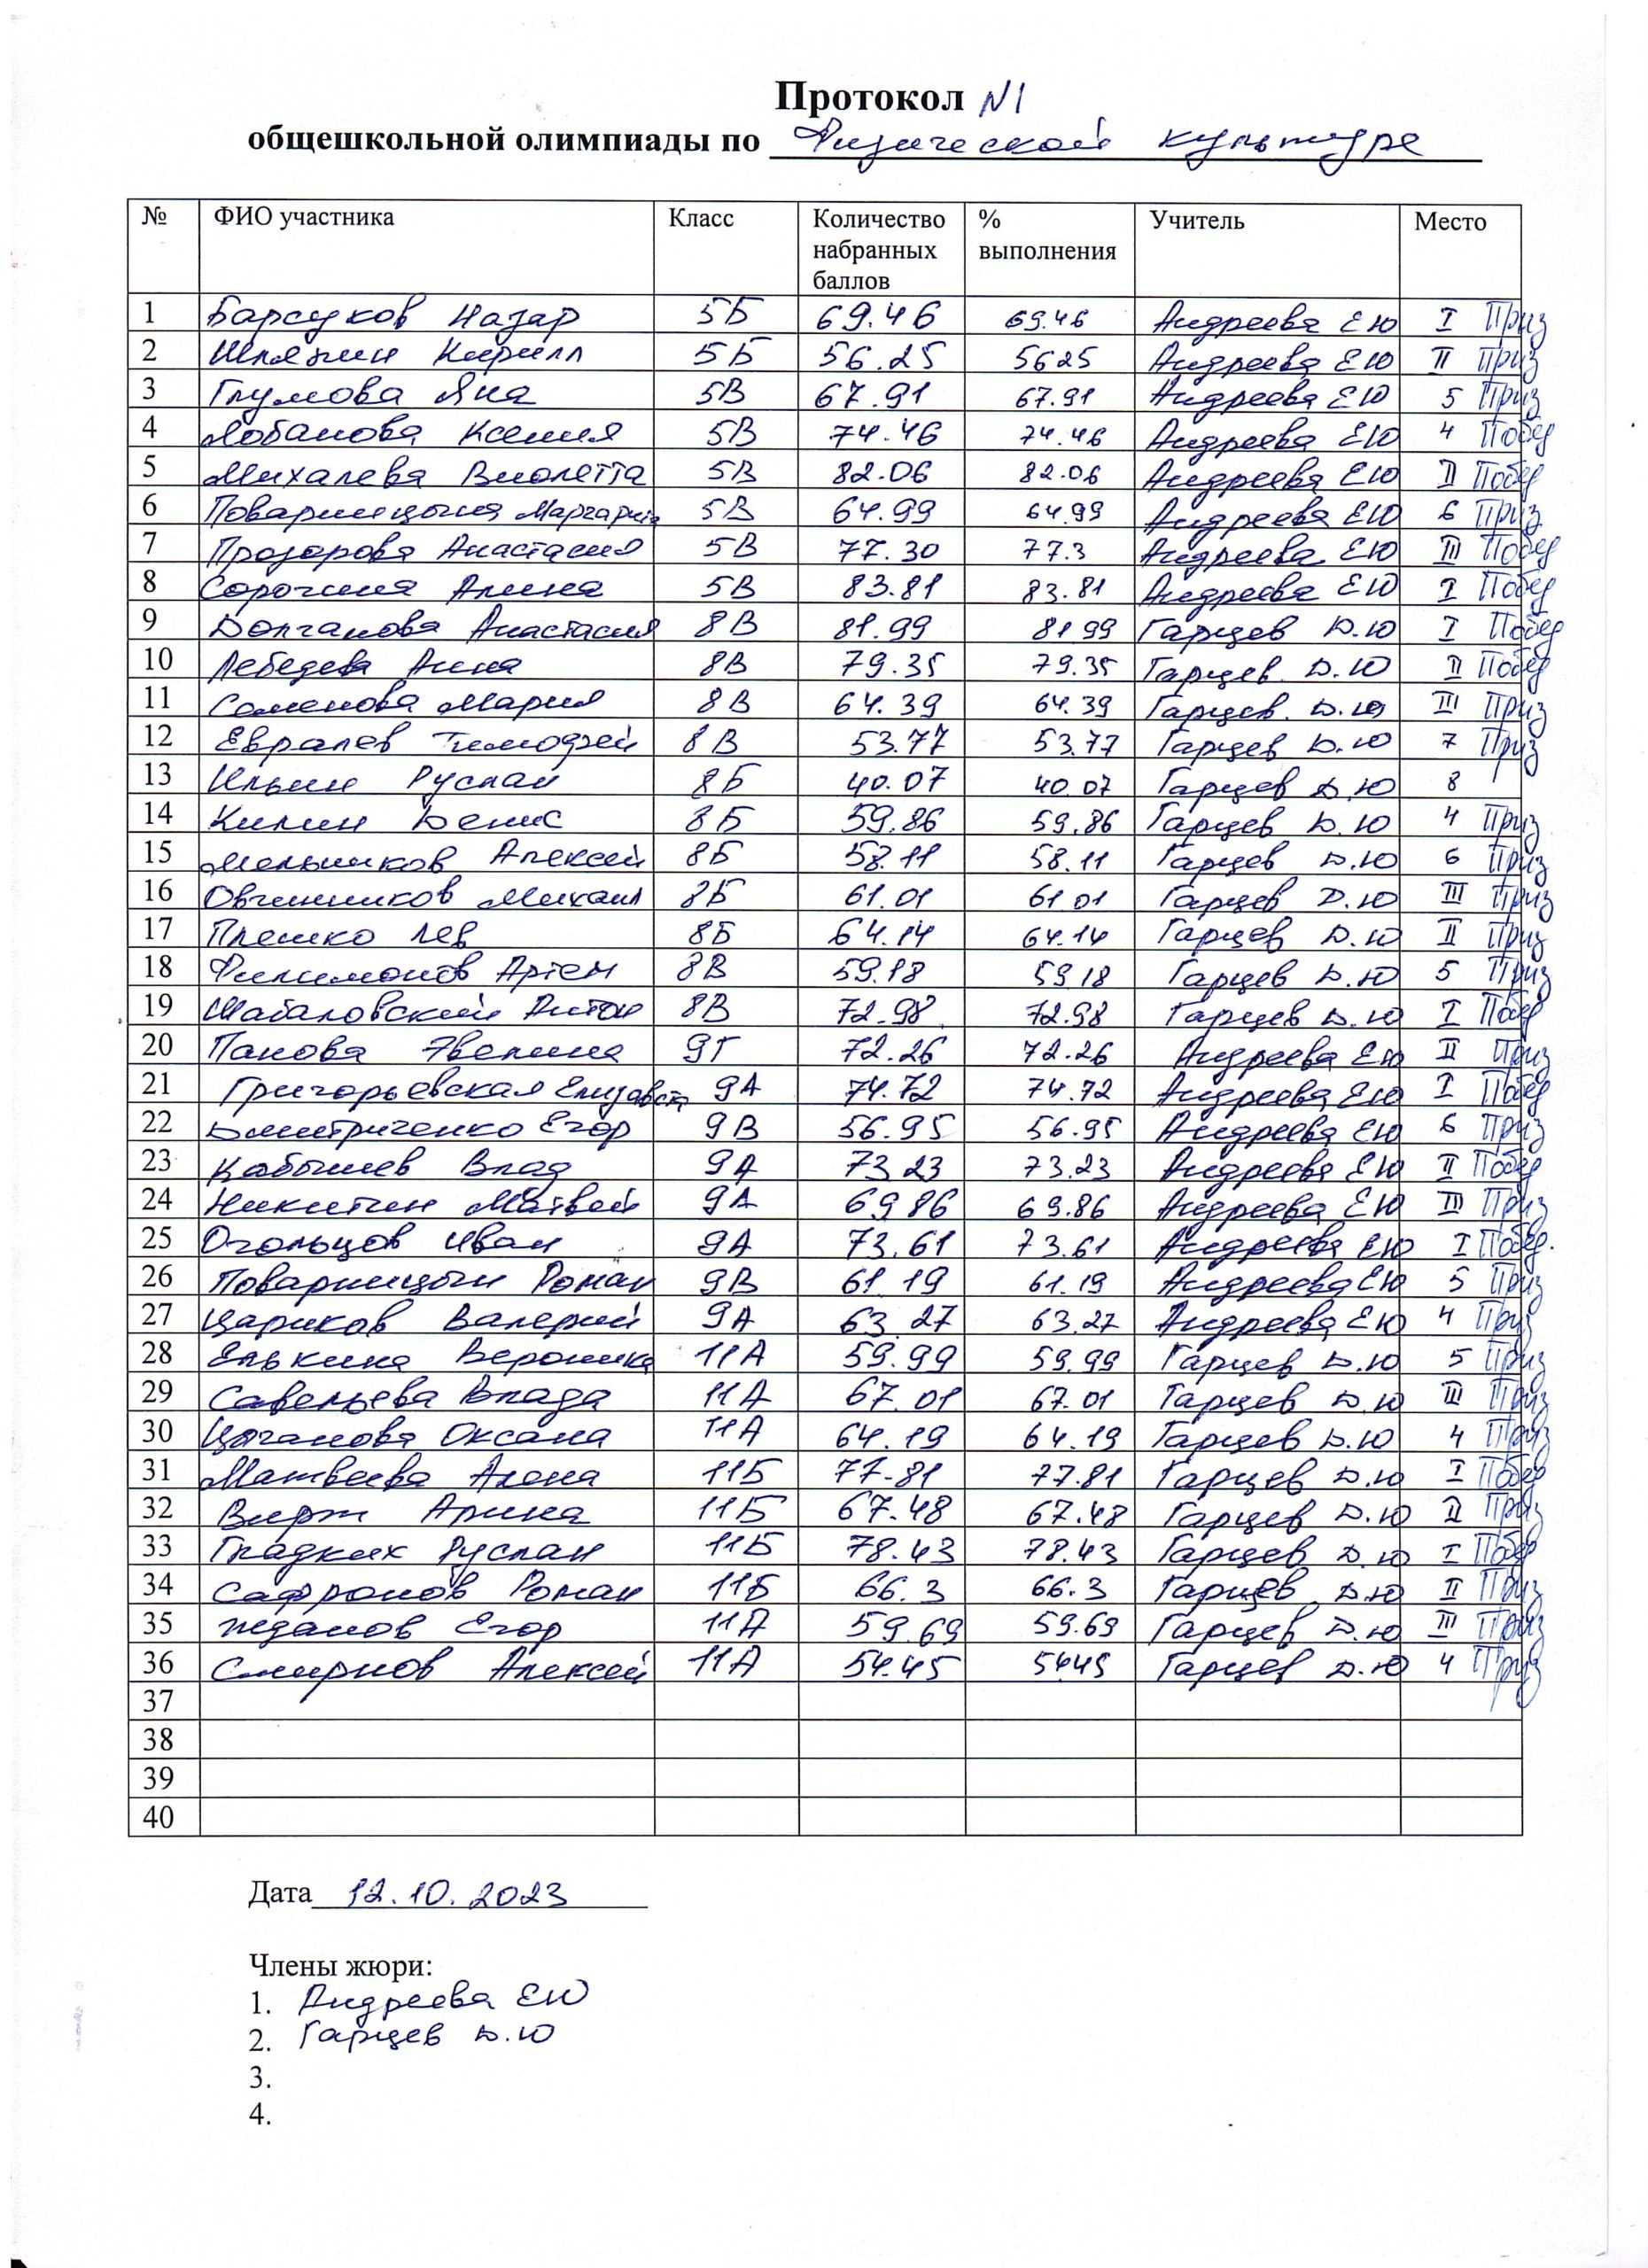 Протокол N1
общешкольной олимпиады по Физической культуре
№ ФИО участника Класс Количество набранных баллов % выполнения Учитель Место
1 Барсуков Назар 5Б 69.46 69.46 Андреева ЕЮ I Приз
2 Шляпин Кирилл 5Б 56.25 5625 Андреева ЕЮ II Приз
3 Глумова Яна 5В 67.91 67.91 Андреева ЕЮ 5 Приз
4 Лобанова Ксения 5В 74.46 74.46 Андреева ЕЮ 4 Побед
5 Михалева Виолетта 5В 82.06 82.06 Андреева ЕЮ II Побед
6 Поварницына Маргарита 5В 64.99 64.99 Андреева ЕЮ 6 Приз
7 Прозорова Анастасия 5В 77.30 77.3 Андреева ЕЮ III Побед
8 Сорочина Алина 5В 83.81 83.81 Андреева ЕЮ I Побед
9 Долганова Анастасия 8В 81.99 81.99 Гарцев Д.Ю I Побед
10 Лебедева Анна 8В 79.35 79.35 Гарцев. Д.Ю II Побед
11 Семенова Мария 8В 64.39 64.39 Гарцев. Д.Ю III Приз
12 Евралев Тимофей 8В 53.77 53.77 Гарцев Д.Ю 7 Приз
13 Ильин Руслан 8Б 40.07 40.07 Гарцев Д.Ю 8
14 Килин Денис 8Б 59.86 59.86 Гарцев Д.Ю 4 Приз
15 Мельников Алексей 8Б 58.11 58.11 Гарцев Д.Ю 6 Приз
16 Овчинников Михаил 8Б 61.01 61.01 Гарцев Д.Ю III Приз
17 Плешко Лев 8Б 64.14 64.14 Гарцев Д.Ю II Приз
18 Филимонов Артем 8В 59.18 59.18 Гарцев Д.Ю 5 Приз
19 Шабаловский Антон 8В 72.98 72.98 Гарцев Д.Ю I Побед
20 Панова Эвелина 9Г 72.26 72.26 Андреева ЕЮ II Приз
21 Григорьевская Елизавета 9А 74.72 74.72 Андреева ЕЮ I Побед
22 Дмитриченко Егор 9В 56.95 56.95 Андреева ЕЮ 6 Приз
23 Кабышев Влад 9А 73.23 73.23 Андреева ЕЮ II Побед
24 Никитин Матвей 9А 69.86 69.86 Андреева ЕЮ III Приз
25 Огольцов Иван 9А 73.61 73.61 Андреева ЕЮ I Побед.
26 Поварницын Роман 9В 61.19 61.19 Андреева ЕЮ 5 Приз
27 Цариков Валерий 9А 63.27 63.27 Андреева ЕЮ 4 Приз
28 Елькина Вероника 11А 59.99 59.99 Гарцев Д.Ю 5 Приз
29 Савельева Влада 11А 67.01 67.01 Гарцев Д.Ю III Приз
30 Цыганова Оксана 11А 64.19 64.19 Гарцев Д.Ю 4 Приз
31 Матвеева Алена 11Б 77.81 77.81 Гарцев Д.Ю I Побед
32 Вирт Арина 11Б 67.48 67.48 Гарцев Д.Ю II Приз
33 Гладких Руслан 11Б 78.43 78.43 Гарцев Д.Ю I Побед
34 Сафронов Роман 11Б 66.3 66.3 Гарцев Д.Ю II Приз
35 Жданов Егор 11А 59.69 59.69 Гарцев Д.Ю III Приз
36 Смирнов Алексей 11А 54.45 54.45 Гарцев Д.Ю 4 Приз
37
38
39
40
Дата 12.10.2023
Члены жюри:
1. Андреева ЕЮ
2. Гарцев Д.Ю
3.
4.